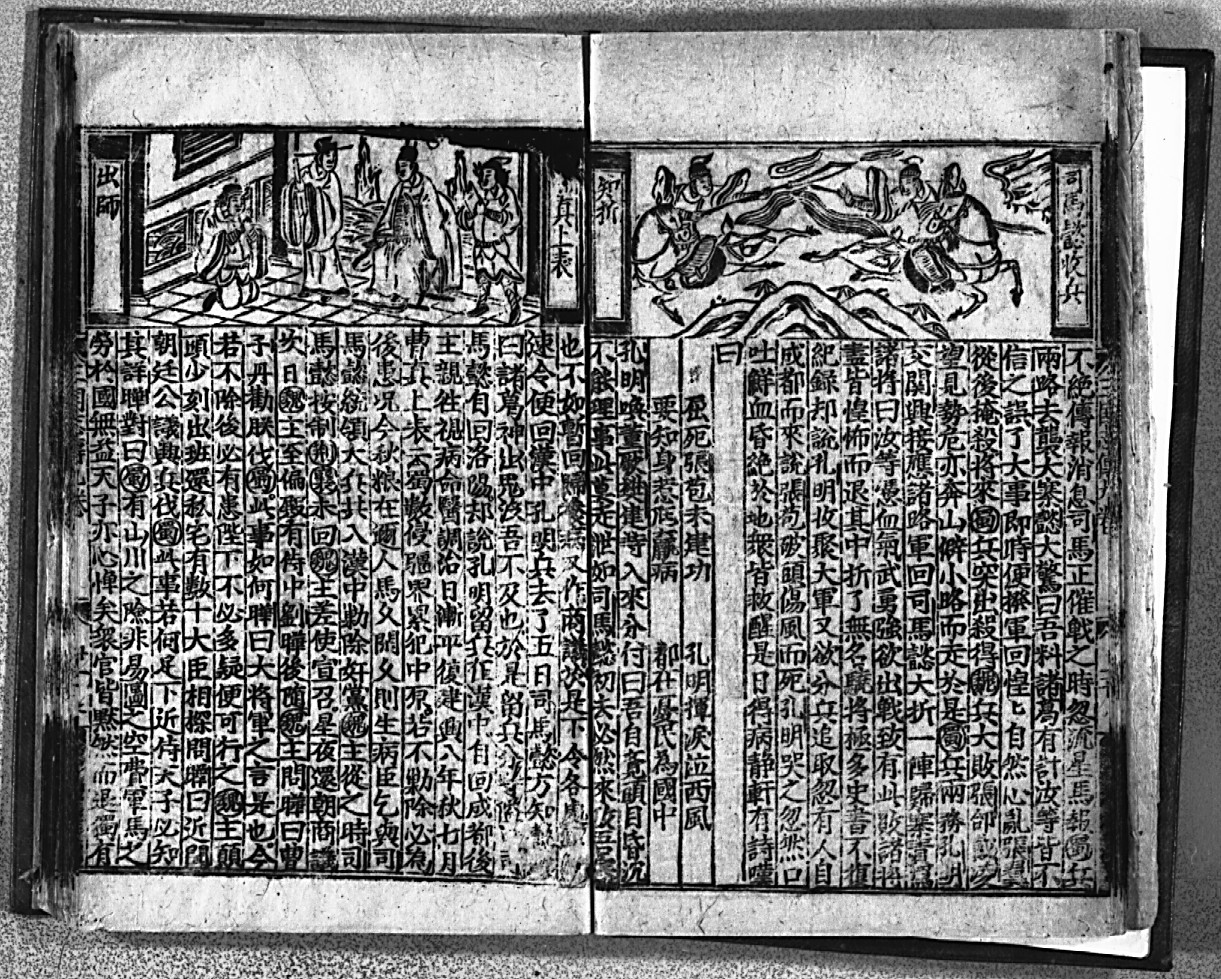 司馬懿收兵
知折
不絕傳報消息司馬正催戰之時忽流星馬報蜀兵
兩路去襲大寨懿大驚曰吾料諸葛有計汝等皆不
信之誤了大事即時便撥軍回惶々自然心亂張翼
從後掩殺將來蜀兵突出殺得魏兵大敗張郃戴陵
望見勢危亦奔山僻小路而走於是蜀兵兩勝孔明
交關興接應諸路軍回司馬懿大折一陣歸寨責罵
諸將曰汝等憑血氣武勇強欲出戰致有此敗諸將
盡皆惶怖而退其中折了無名驍將極多史書不復
紀録却說孔明收聚大軍又欲分兵追取忽有人自
成都而來說張苞破頭傷風而死孔明哭之忽然口
吐鮮血昏絕於地衆皆救醒是日得病靜軒有詩嘆
曰
屈死張苞未建功 孔明揮淚泣西風
要知身惹尫羸病 都在憂民為國中
孔明喚董厥樊建等入來分付曰吾自覺頭目昏沉
不能理事 走泄如司馬懿初夫必然來
真上表
出師
也不如暫回歸 病又作商議於是下令各
速令便回漢中孔明兵去了五日司馬懿方知
曰諸葛神出鬼沒吾不及也於是留兵
馬懿自回洛陽却說孔明留兵在漢中自回成都後
主親往視病命醫調治日漸平復建興八年秋七月
曹真上表云蜀數侵疆界累犯中原若不勦除必為
後患况今秋粮在邇人馬久閑久則生病臣乞與司
馬懿統領大兵共入漢中勦除奸黨魏主從之時司
馬懿按制荊襄未回魏主差使宣召星夜還朝商議
次日魏主至偏殿有侍中劉曄後隨魏主問曄曰曹
子丹勸朕伐蜀此事如何曄曰大將軍之言是也今
若不除後必有患陛下不必多疑便可行之魏主頷
頭少刻出班還私宅有數十大臣相探問曄曰近聞
朝廷公議興兵伐蜀此事若何足下近侍天子必知
其詳曄對曰蜀有山川之險非易圖之空費軍馬之
勞於國無益天子亦心憚矣衆官皆黙然而退獨有